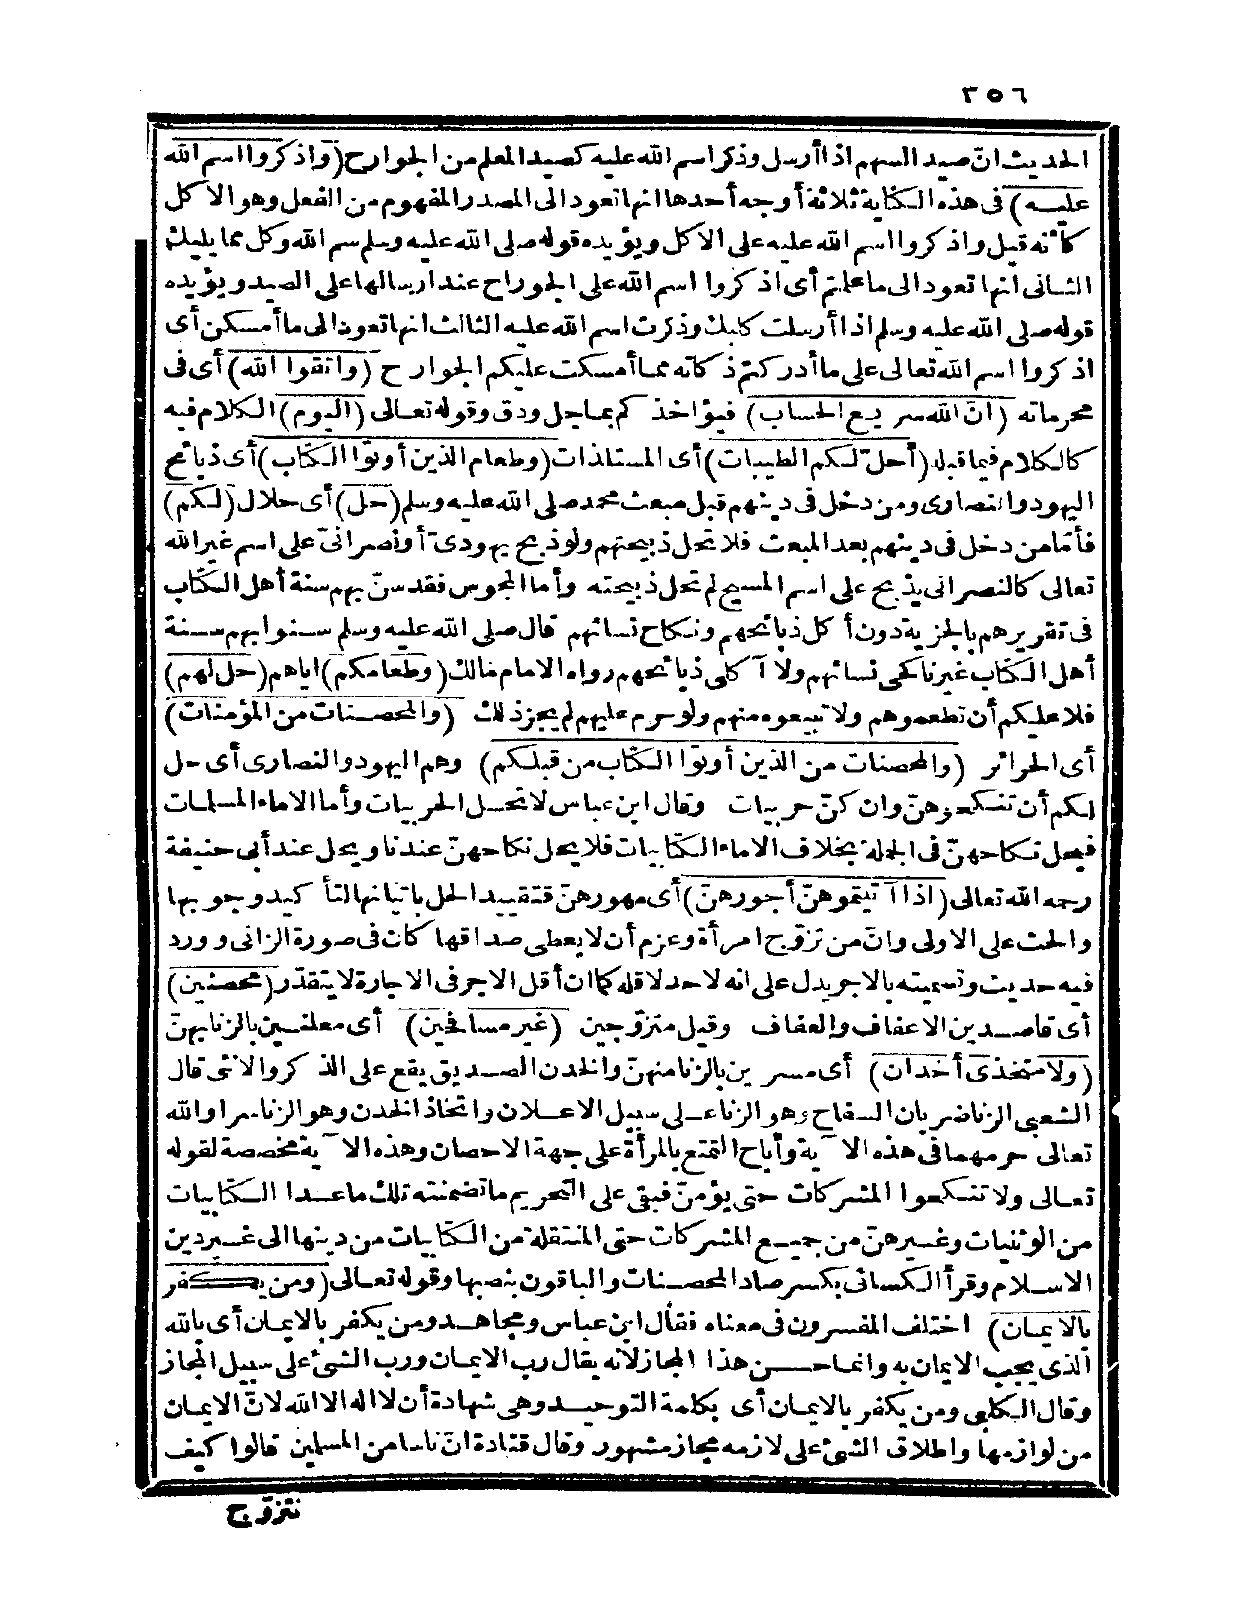 ٣٥٦
الحديث انّ صيد السهم اذا أرسل وذكر اسم الله عليه كصيد المعلم من الجوارح (واذكروا اسم الله
عليه) فى هذه الكناية ثلاثة أوجه أحدها انها تعود الى المصدر المفهوم من الفعل وهو الاكل
كأنه قيل واذكروا اسم الله عليه على الاكل ويؤيده قوله صلى الله عليه وسلم سم الله وكل مما يليك
الثانى انها تعود الى ما علتم أى اذكروا اسم الله على الجوراح عند ارسالها على الصيد ويؤيده
قوله صلى الله عليه وسلم اذا أرسلت كلبك وذكرت اسم الله عليه الثالث انها تعود الى ما أمسكن أى
اذكروا اسم الله تعالى على ما أدركتم ذكاته مما أمسكت عليكم الجوارح (واتقوا الله) أى فى
محرماته (انّ الله سريع الحساب) فيؤاخذكم بما جل ودق وقوله تعالى (اليوم) الكلام فيه
كالكلام فيما قبله (أحل لكم الطيبات) أى المستلذات (وطعام الذين أوتوا الكتاب) أى ذبائح
اليهود والنصارى ومن دخل فى دينهم قبل مبعث محمد صلى الله عليه وسلم (حل) أى حلال (لكم)
فأمّا من دخل فى دينهم بعد المبعث فلا تحل ذبيحتهم ولو ذبح يهودىّ أو نصرانىّ على اسم غير الله
تعالى كالنصرانى يذبح على اسم المسيح لم تحل ذبيحته وأما المجوس فقد سنّ بهم سنة أهل الكتاب
فى تقريرهم بالجزية دون أكل ذبائحهم ونكاح نسائهم قال صلى الله عليه وسلم سنوا بهم سنة
أهل الكتاب غير ناكحى نسائهم ولا آكلى ذبائحهم رواه الامام مالك (وطعامكم) اياهم (حل لهم)
فلا عليكم أن تطعموهم ولا تبيعوه منهم ولو حرم عليهم لم يجز ذلك (والمحصنات من المؤمنات)
أى الحرائر (والمحصنات من الذين أوتوا الكتاب من قبلكم) وهم اليهود والنصارى أى حل
لكم أن تنكحوهنّ وان كنّ حربيات وقال ابن عباس لا تحل الحربيات وأما الاماء المسلمات
فيحل نكاحهنّ فى الجملة بخلاف الاماء الكتابيات فلا يحل نكاحهنّ عندنا ويحل عند أبى حنيفة
رحمه الله تعالى (اذا آتيتموهنّ أجورهنّ) أى مهورهنّ فتقييد الحل باتيانها لتأكيد وجوبها
والحث على الاولى وانّ من تزوّج امرأة وعزم أن لا يعطى صداقها كان فى صورة الزانى وورد
فيه حديث وتسميته بالاجر يدل على انه لا حد لاقله كما ان أقل الاجر فى الاجارة لا يتقدّر (محصنين)
أى قاصدين الاعفاف والعفاف وقيل متزوّجين (غير مسافحين) أى معلنين بالزنا بهنّ
(ولا متخذى أخدان) أى مسرين بالزنا منهنّ والخدن الصديق يقع على الذكر والانثى قال
الشعبى الزنا ضربان السفاح وهو الزنا على سبيل الاعلان واتخاذ الخدن وهو الزنا سرا والله
تعالى حرمهما فى هذه الآية وأباح التمتع بالمرأة على جهة الاحصان وهذه الآية مخصصة لقوله
تعالى ولا تنكحوا المشركات حتى يؤمنّ فبقى على التحريم ما تضمنته تلك ما عدا الكتابيات
من الوثنيات وغيرهنّ من جميع المشركات حتى المنتقلة من الكتابيات من دينها الى غير دين
الاسلام وقرأ الكسائى بكسر صاد المحصنات والباقون بنصبها وقوله تعالى (ومن يكفر
بالايمان) اختلف المفسرون فى معناه فقال ابن عباس ومجاهد ومن يكفر بالايمان أى بالله
الذى يجب الايمان به وانما حسن هذا المجاز لانه يقال رب الايمان ورب الشئ على سبيل المجاز
وقال الكلبى ومن يكفر بالايمان أى بكلمة التوحيد وهى شهادة أن لا اله الا الله لانّ الايمان
من لوازمها واطلاق الشئ على لازمه مجاز مشهور وقال قتادة انّ ناسا من المسلمين قالوا كيف
نتزوّج